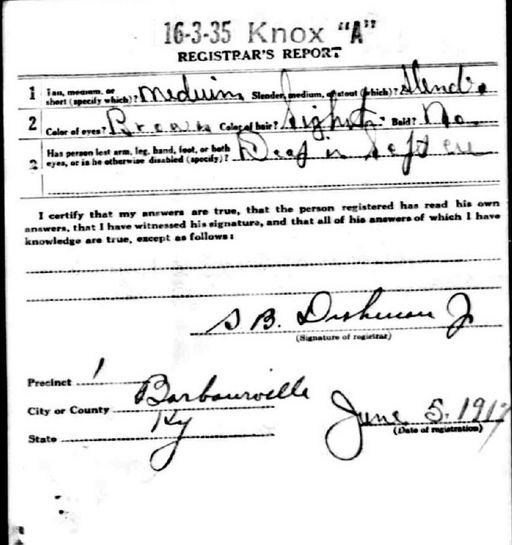 16-3-35 Knox "A"
REGISTRAR'S REPORT
1 Tall, medium, or short (specify which)? Medium Slender, medium, or stout (which)? Slender
2 Color of eyes? Brown Color of hair? Light Bald? No
3 Has person lost arm, leg, hand, foot, or both eyes, or is he otherwise disabled (specify)? Deaf in left ear
I certify that my answers are true, that the person registered has read his own
answers, that I have witnessed his signature, and that all of his answers of which I have
knowledge are true, except as follows:
S B. Dishman Jr
(Signature of registrar)
Precinct 1
City or County Barbourville
State Ky
June 5. 1917
(Date of registration)